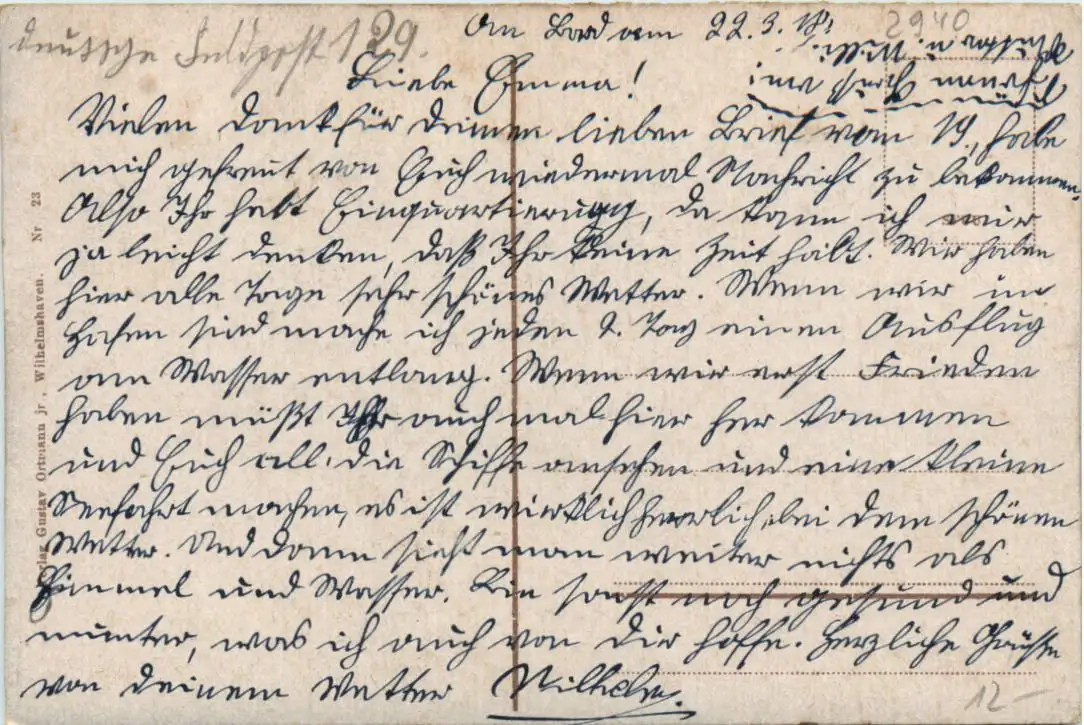 deutsche Feldpost 129.
2940
An Bord am 22.3.18.
Liebe Emma!
Vielen Dank für deinen lieben Brief vom 19., habe
mich gefreut von Euch wiedermal Nachricht zu bekommen.
Also Ihr habt Einquartierung, da kann ich mir
ja leicht denken, daß Ihr keine Zeit habt. Wir haben
hier alle Tage sehr schönes Wetter. Wenn wir im
Hafen sind mache ich jeden 2. Tag einen Ausflug
am Wasser entlang. Wenn wir erst Frieden
haben müßt Ihr auch mal hier her kommen
und Euch all. die Schiffe ansehen und eine kleine
Seefahrt machen, es ist wirklich herrlich bei dem schönen
Wetter. Und dann sieht man weiter nichts als
Himmel und Wasser. Bin sonst noch gesund und
munter, was ich auch von Dir hoffe. Herzliche Grüsse
von deinem Vetter Wilhelm.
Gustav Ortmann jr., Wilhelmshaven. Nr 23
12-